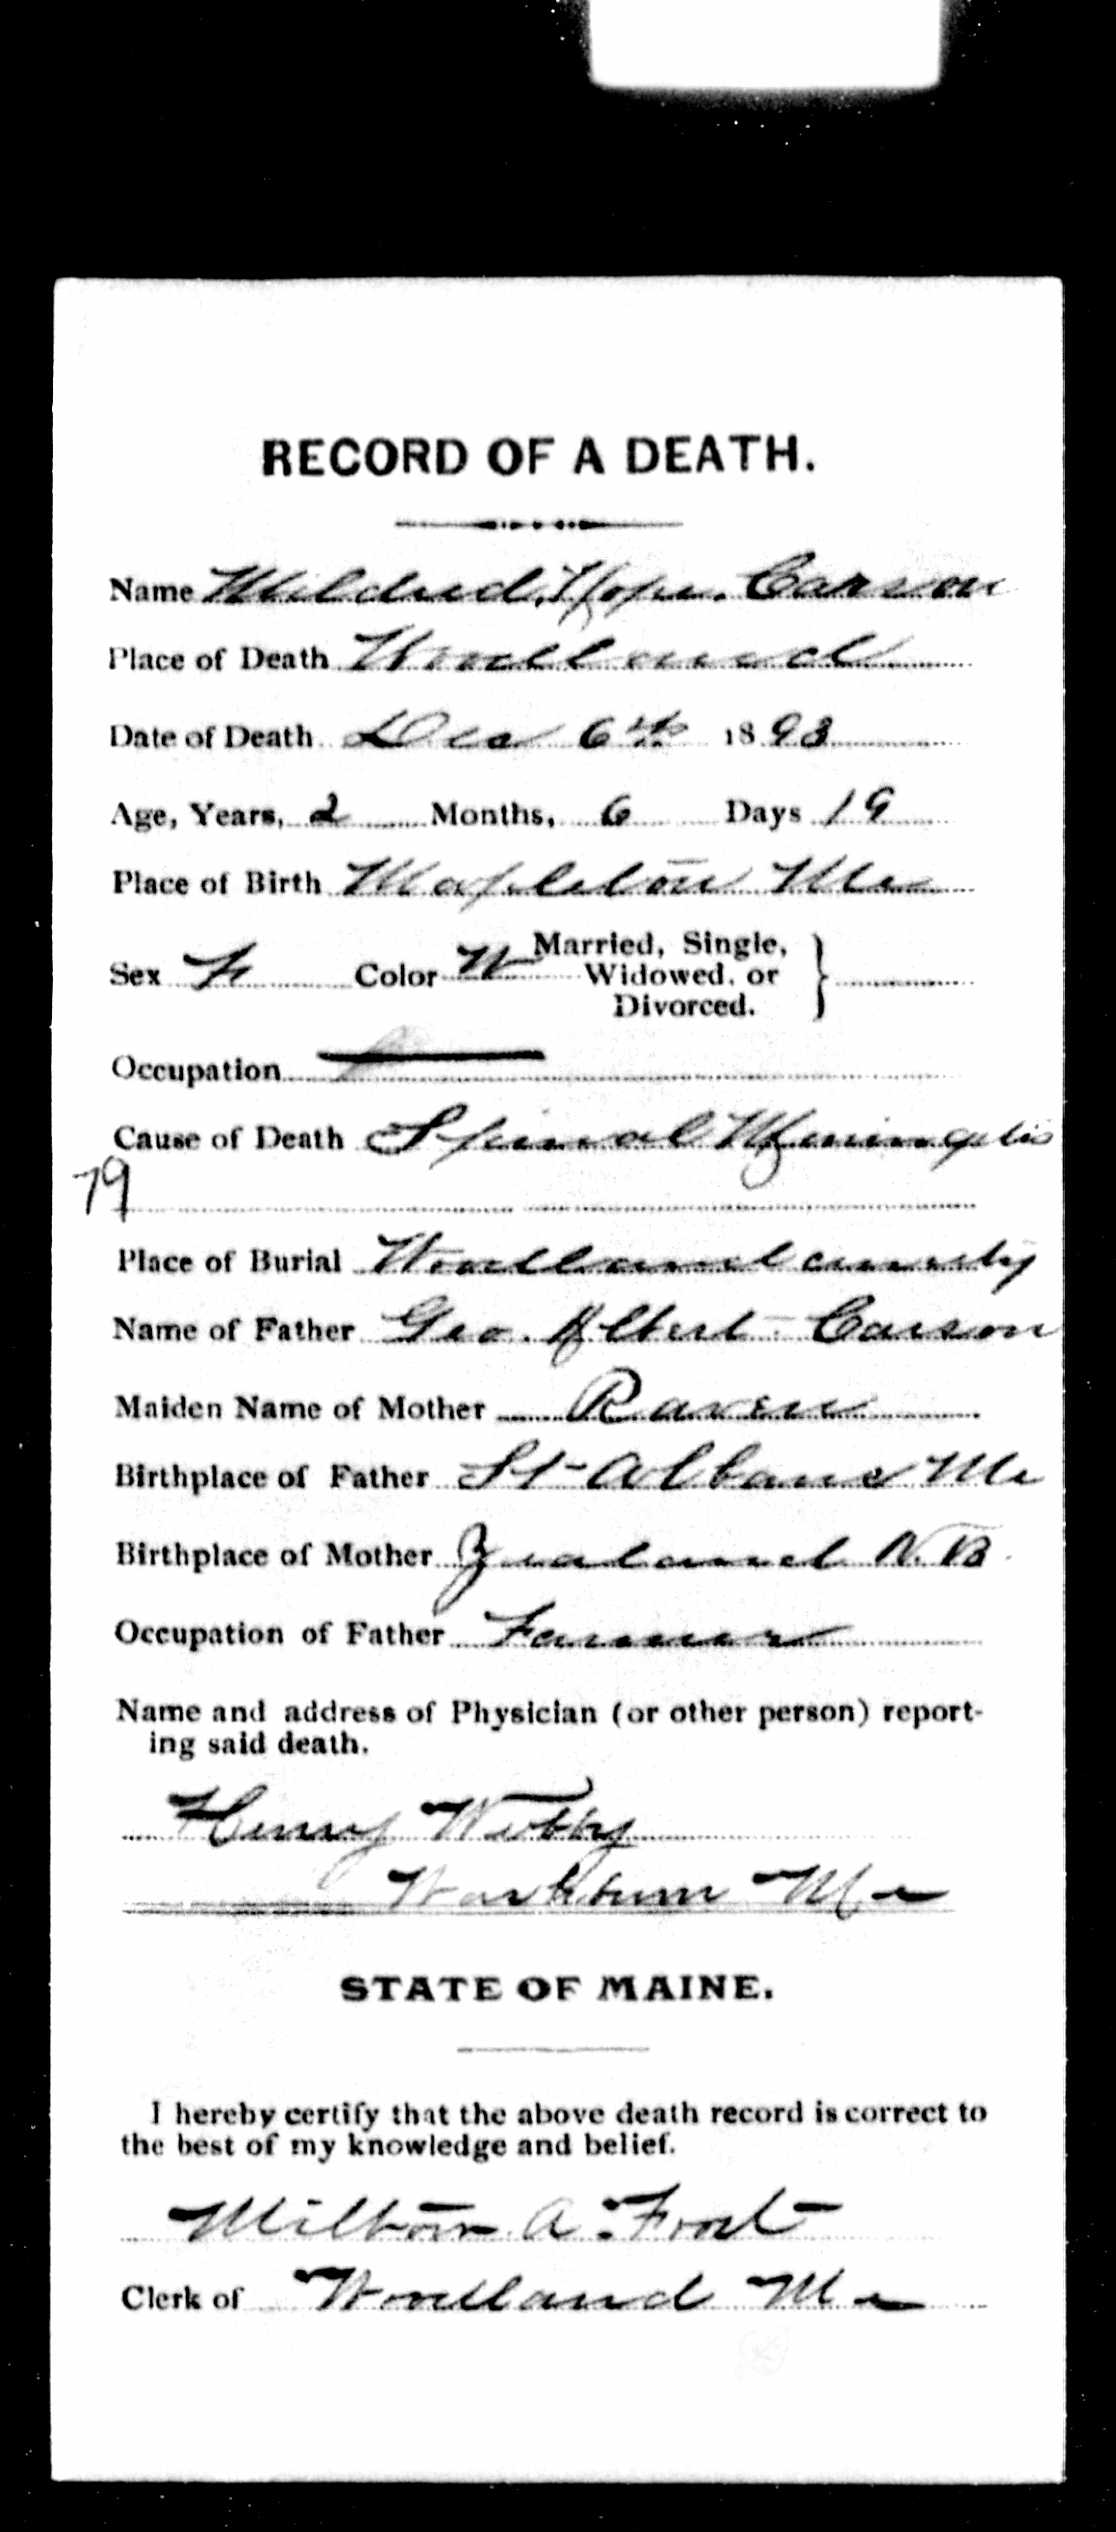 RECORD OF A DEATH.
Name Mildred Hope Carson
Place of Death Woodland
Date of Death Dec 6th 1893
Age, Years, 2 Months, 6 Days 19
Place of Birth Mapleton Me
Sex F Color W Married, Single, Widowed, or Divorced.
Occupation
Cause of Death Spinal Meningitis
79
Place of Burial Woodland
Name of Father Geo. Albert Carson
Maiden Name of Mother Raven
Birthplace of Father St Albans Me
Birthplace of Mother Zealand N.B.
Occupation of Father Farmer
Name and address of Physician (or other person) report-
ing said death.
Henry
Washburn Me
STATE OF MAINE.
I hereby certify that the above death record is correct to
the best of my knowledge and belief.
Milton A. Frost
Clerk of Woodland Me